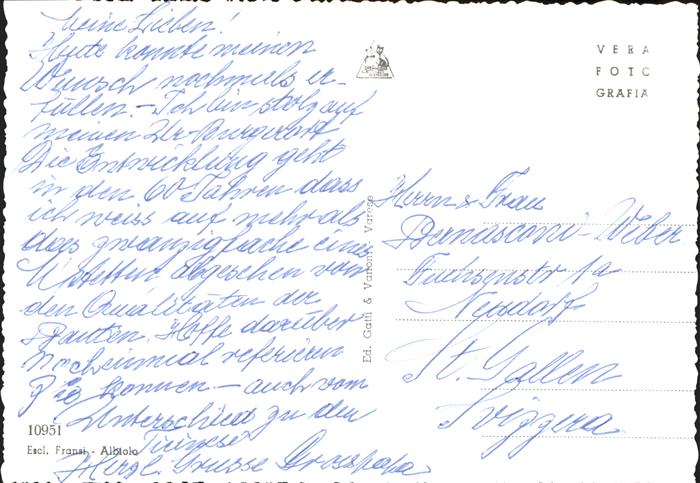 Meine Lieben!
Heute konnte meinen
Wunsch nochmals er-
füllen. - Ich bin stolz auf
meinen Ur-Burgerort
Die Entwicklung geht
in den 60 Jahren dass
ich weiss auf mehr als
das zwanzigfache eines
abgesehen von
den Qualitäten der
Bauten. Hoffe darüber
nocheinmal referieren
zu konnen - auch vom
Unterschied zu den
Herzl. Grüsse Grosspapa
10951
Escl. Fransi - Albiolo
Ed. Gatti & Vanoni - Varese
VERA
FOTO
GRAFIA
Herrn & Frau
Bernasconi-Weber
Fuchsenstr 1a
Neudorf
St. Gallen
Svizzera